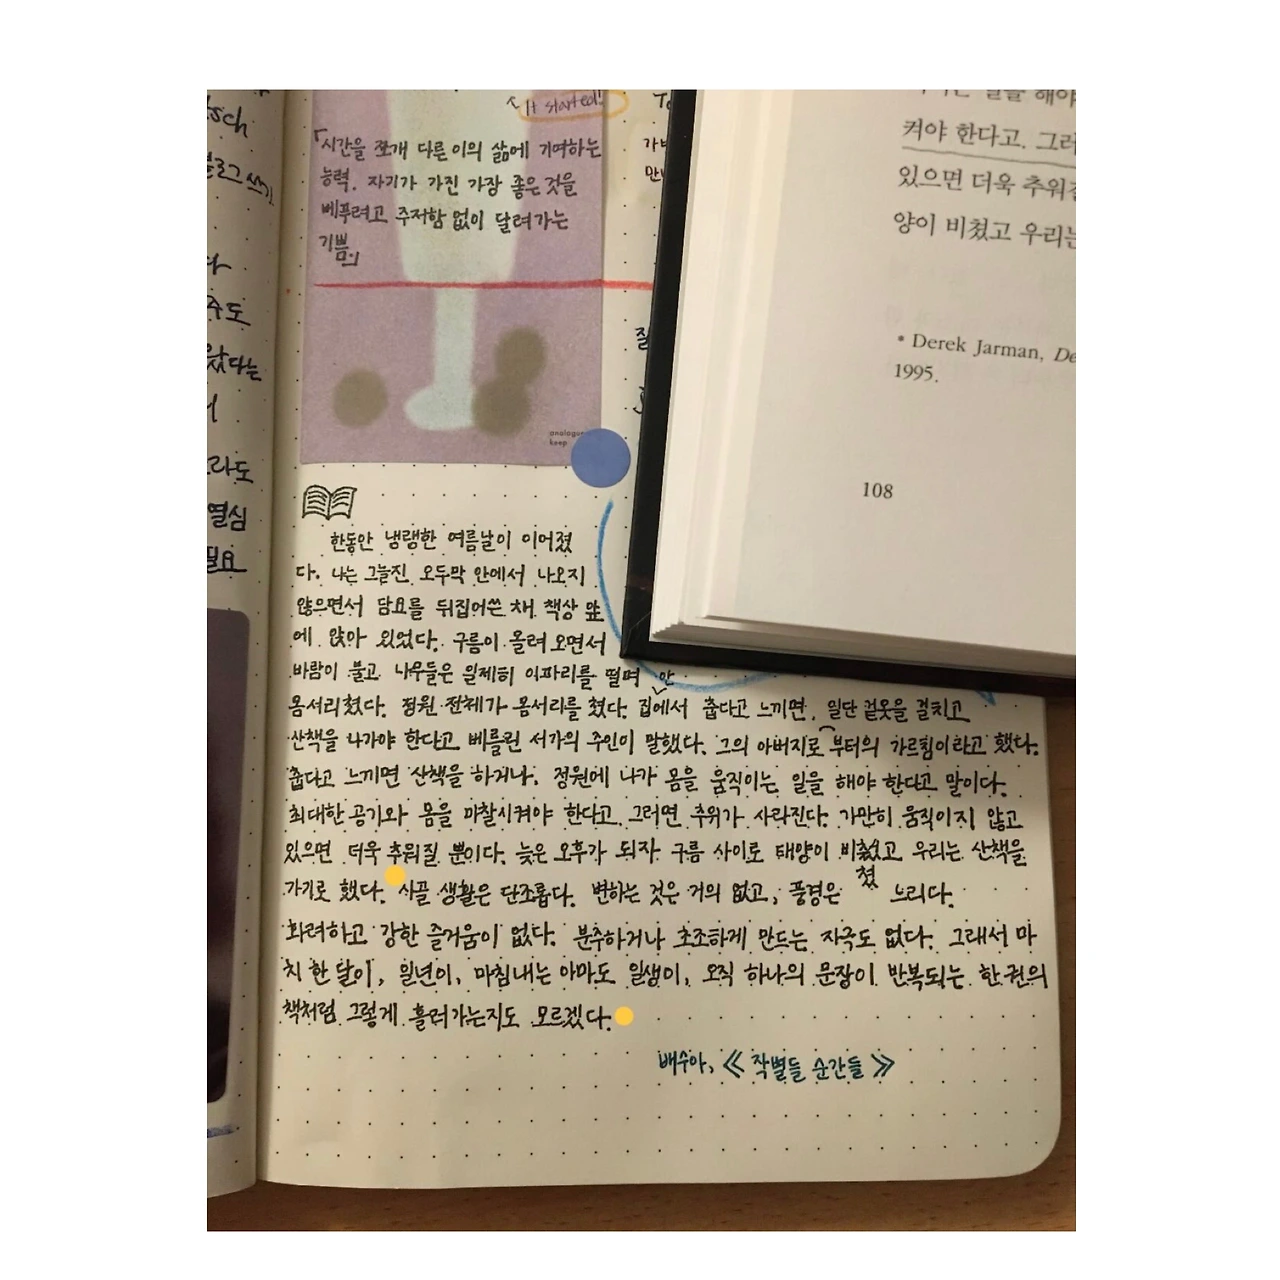 sch
블로그 쓰기
It started!
「시간을 쪼개 다른 이의 삶에 기여하는
능력. 자기가 가진 가장 좋은 것을
베푸려고 주저함 없이 달려가는
기쁨.」
analogue
keep
왔다는
라도
열심
필요
한동안 냉랭한 여름날이 이어졌
다. 나는 그늘진 오두막 안에서 나오지
않으면서 담요를 뒤집어쓴 채 책상 앞
에 앉아 있었다. 구름이 몰려오면서
바람이 불고 나무들은 일제히 이파리를 떨며
몸서리쳤다. 정원 전체가 몸서리를 쳤다. 집안에서 춥다고 느끼면, 일단 겉옷을 걸치고
산책을 나가야 한다고 베를린 서가의 주인이 말했다. 그의 아버지로부터의 가르침이라고 했다.
춥다고 느끼면 산책을 하거나, 정원에 나가 몸을 움직이는 일을 해야 한다고 말이다.
최대한 공기와 몸을 마찰시켜야 한다고. 그러면 추위가 사라진다. 가만히 움직이지 않고
있으면 더욱 추워질 뿐이다. 늦은 오후가 되자 구름 사이로 태양이 비췄고 우리는 산책을
쳤
가기로 했다. 시골 생활은 단조롭다. 변하는 것은 거의 없고, 풍경은 느리다.
화려하고 강한 즐거움이 없다. 분주하거나 초조하게 만드는 자극도 없다. 그래서 마
치 한 달이, 일년이, 마침내는 아마도 일생이, 오직 하나의 문장이 반복되는 한 권의
책처럼 그렇게 흘러가는지도 모르겠다.
배수아, 《작별들 순간들》
켜야 한다고. 그러
있으면 더욱 추워질
양이 비쳤고 우리는
* Derek Jarman, De
1995.
108